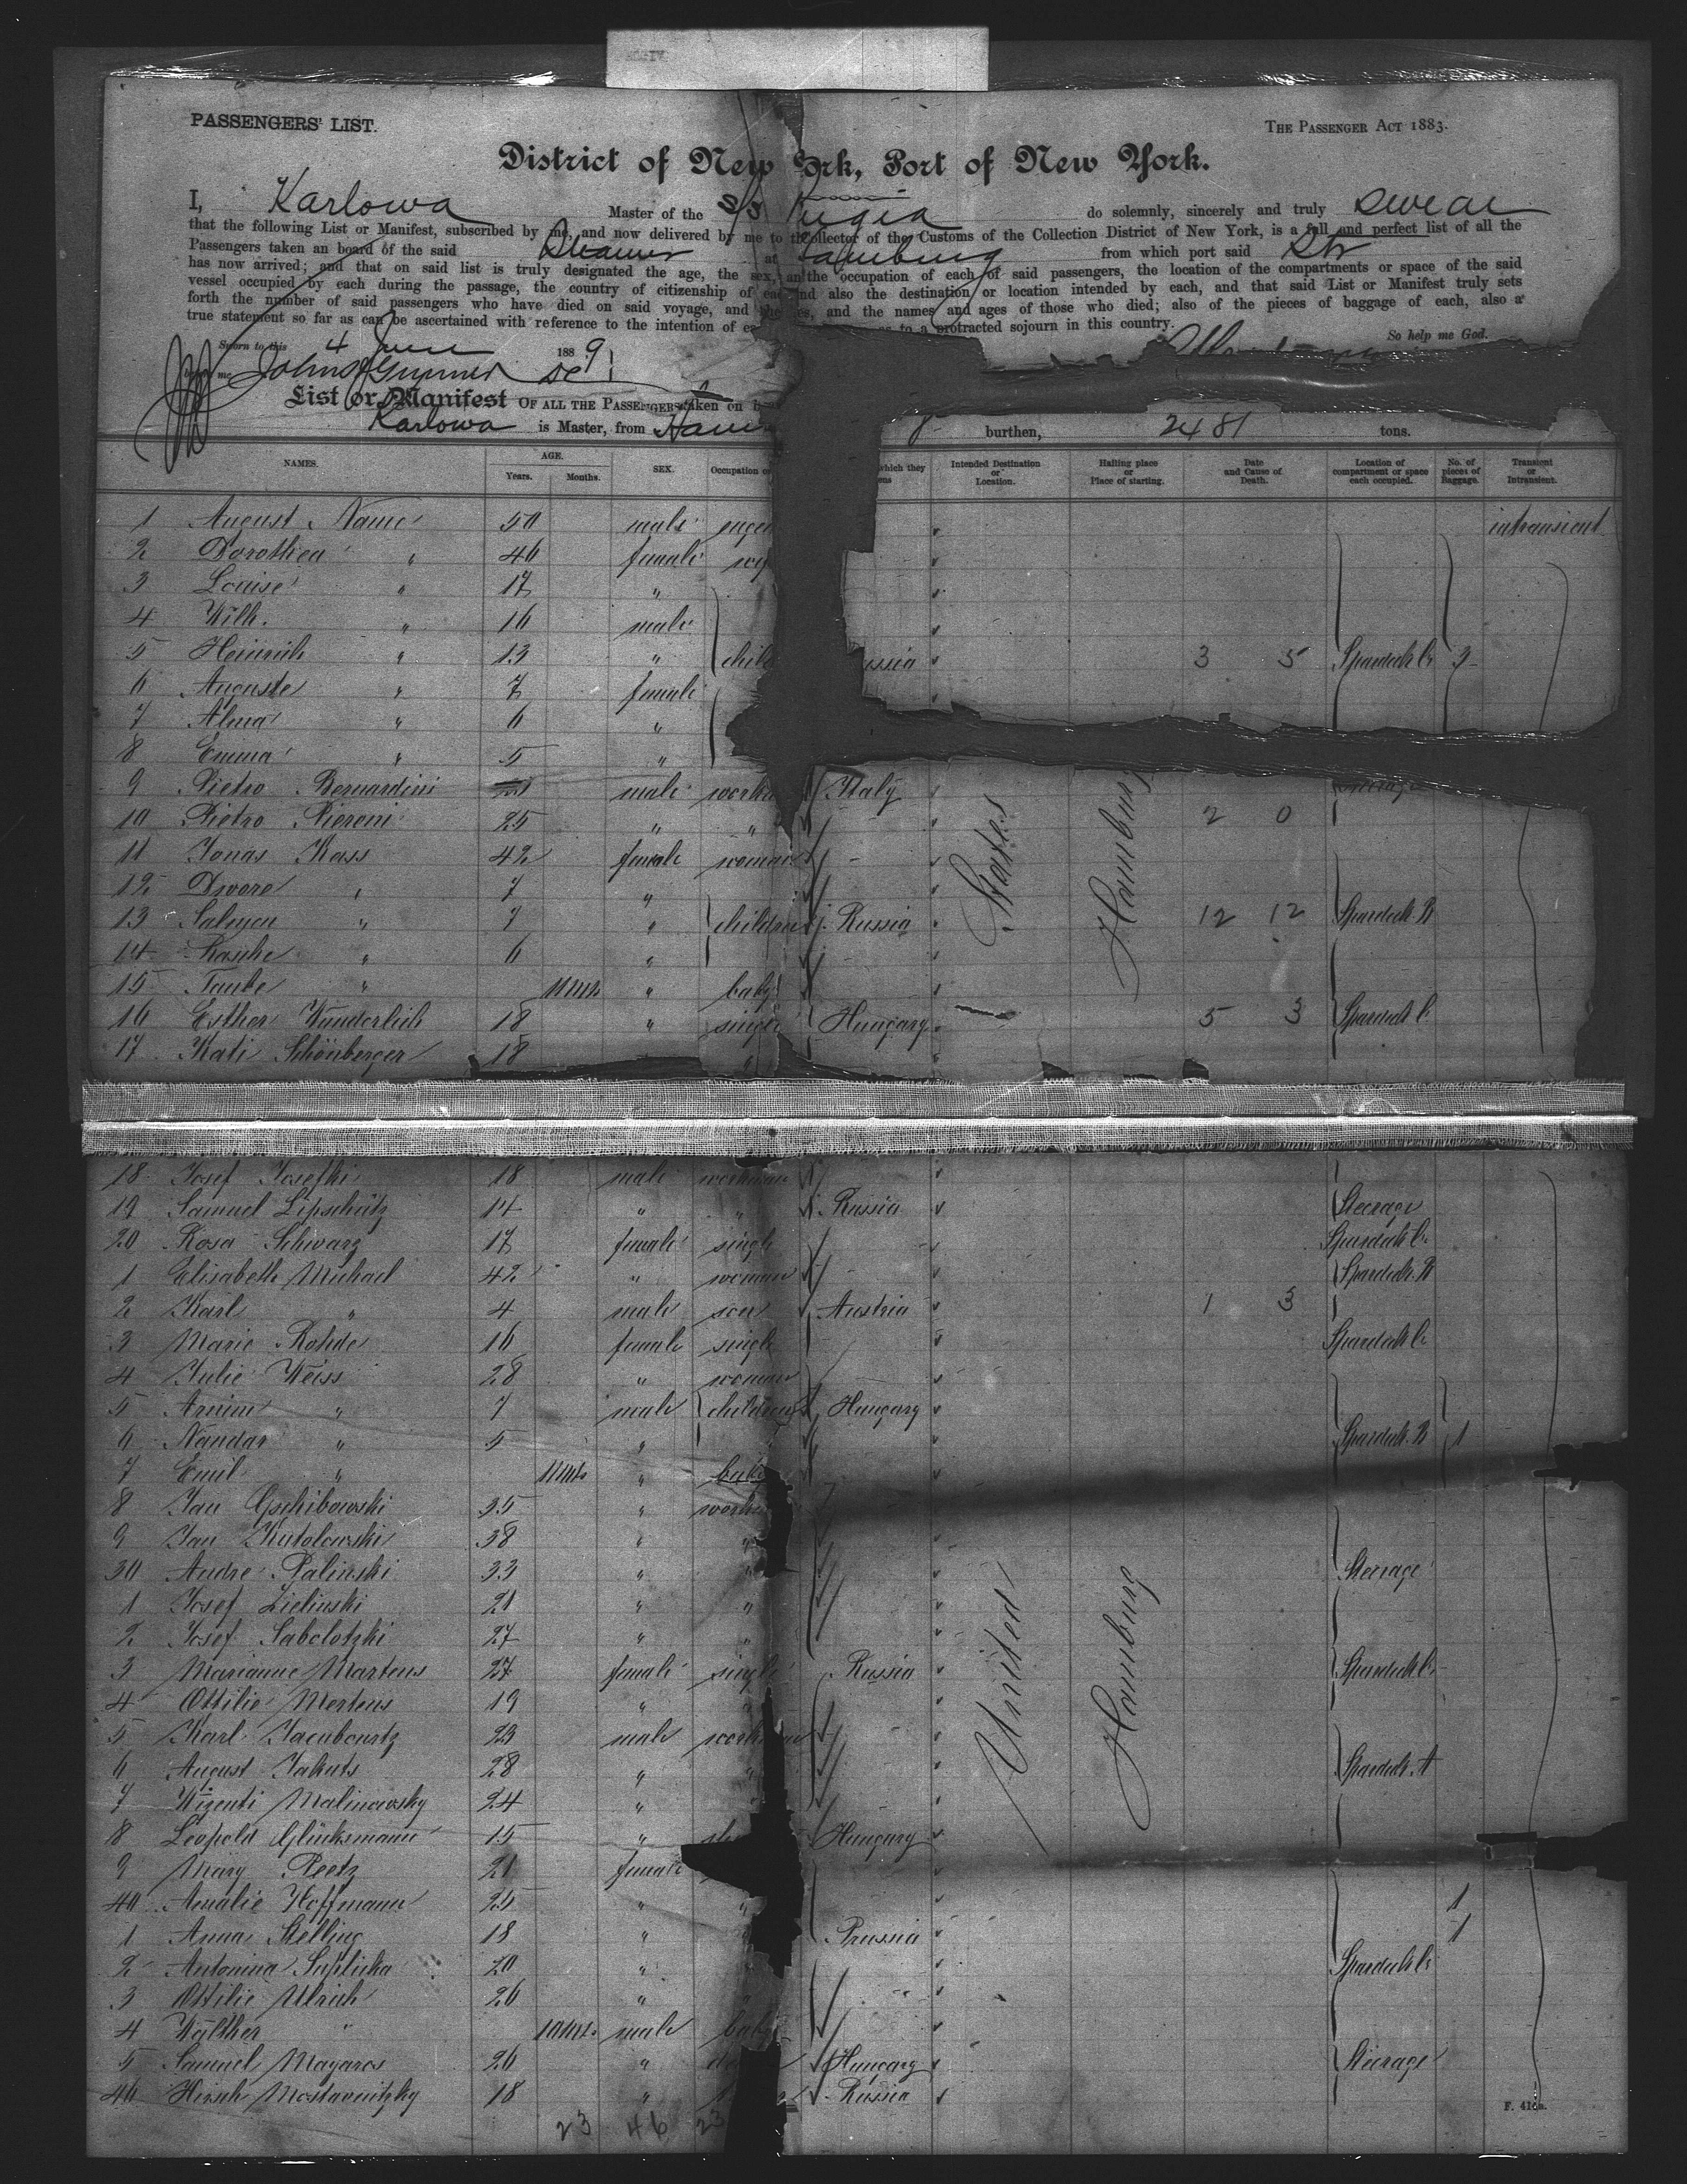 PASSENGERS' LIST.
THE PASSENGER ACT 1883.
District of New York, Port of New York.
I, Karlowa Master of the S/S Rugia do solemnly, sincerely and truly swear
that the following List or Manifest, subscribed by me, and now delivered by me to the Collector of the Customs of the Collection District of New York, is a full and perfect list of all the
Passengers taken an board of the said Steamer at Hamburg from which port said Str
has now arrived; and that on said list is truly designated the age, the sex, an the occupation of each of said passengers, the location of the compartments or space of the said
vessel occupied by each during the passage, the country of citizenship of each and also the destination or location intended by each, and that said List or Manifest truly sets
forth the number of said passengers who have died on said voyage, and the es, and the names and ages of those who died; also of the pieces of baggage of each, also a
true statement so far as can be ascertained with reference to the intention of ea as to a protracted sojourn in this country.
Sworn to this 4 June 1889 So help me God.
me John
List or Manifest OF ALL THE PASSENGERS taken on b
Karlowa is Master, from Ham g burthen, 2481 tons.
NAMES. AGE. Years. Months. SEX. Occupation or which they ens Intended Destination or Location. Halting place or Place of starting. Date and Cause of Death. Location of compartment or space each occupied. No. of pieces of Baggage. Transient or Intransient.
1 August Name 50 male intransient
2 Dorothea " 46 female
3 Louise " 17 "
4 Wilh. " 16 male
5 Heinrich " 13 " child ussia 3 5 Spardeck C 3
6 Auguste " 7 female
7 Alma " 6 "
8 Emma " 5 "
9 Pietro Bernardini male workm Italy
10 Pietro Pieroni 25 " " 2 0
11 Jonas Kass 42 female woman
12 Dwore " 7 "
13 Salmen " 7 " children Russia 12 12 Spardeck B
14 Rasche " 6 "
15 Taube " 11 Mts " baby
16 Esther Wunderlich 18 " single Hungary 5 3 Spardeck C
17 Kati Schönberger 18 "
States
Hamburg
18 Josef Josefski 18 male workman
19 Samuel Lipschütz 14 " " Russia Steerage
20 Rosa Schwarz 17 female single Spardeck C
1 Elisabeth Michael 42 " woman Spardeck B
2 Karl " 4 male son Austria 1 3
3 Marie Rohde 16 female single Spardeck C
4 Julie Weiss 28 " woman
5 Armin " 7 male children Hungary
6 Nandar " 5 " Spardeck B 1
7 Emil " 11 Mts " baby
8 Jan Gschibowski 35 " workm
9 Jan Kutolowski 38 " "
30 Andre Palinski 33 " " Steerage
1 Josef Zielinski 21 " "
2 Josef Sabolotzki 27 " "
3 Marianne Martens 27 female single Russia Spardeck C
4 Ottilie Mertens 19 " "
5 Karl 23 male workman
6 August Jakuts 28 " " Spardeck A
7 Wizenti Malinowsky 24 " "
8 Leopold Glücksmann 15 " Hungary
9 Mary Peetz 21 female
40 Amalie Hoffmann 25 " " 1
1 Anna Stelling 18 " Prussia 1
2 Antonina Suplicka 20 " Spardeck C
3 Ottilie Ulrich 26 " "
4 Walther " 10 Mts. male baby
5 Samuel Magaros 26 " Hungary Steerage
46 Hirsch Mostawnitzky 18 " Russia
United
Hamburg
23 46 23
F. 416a.